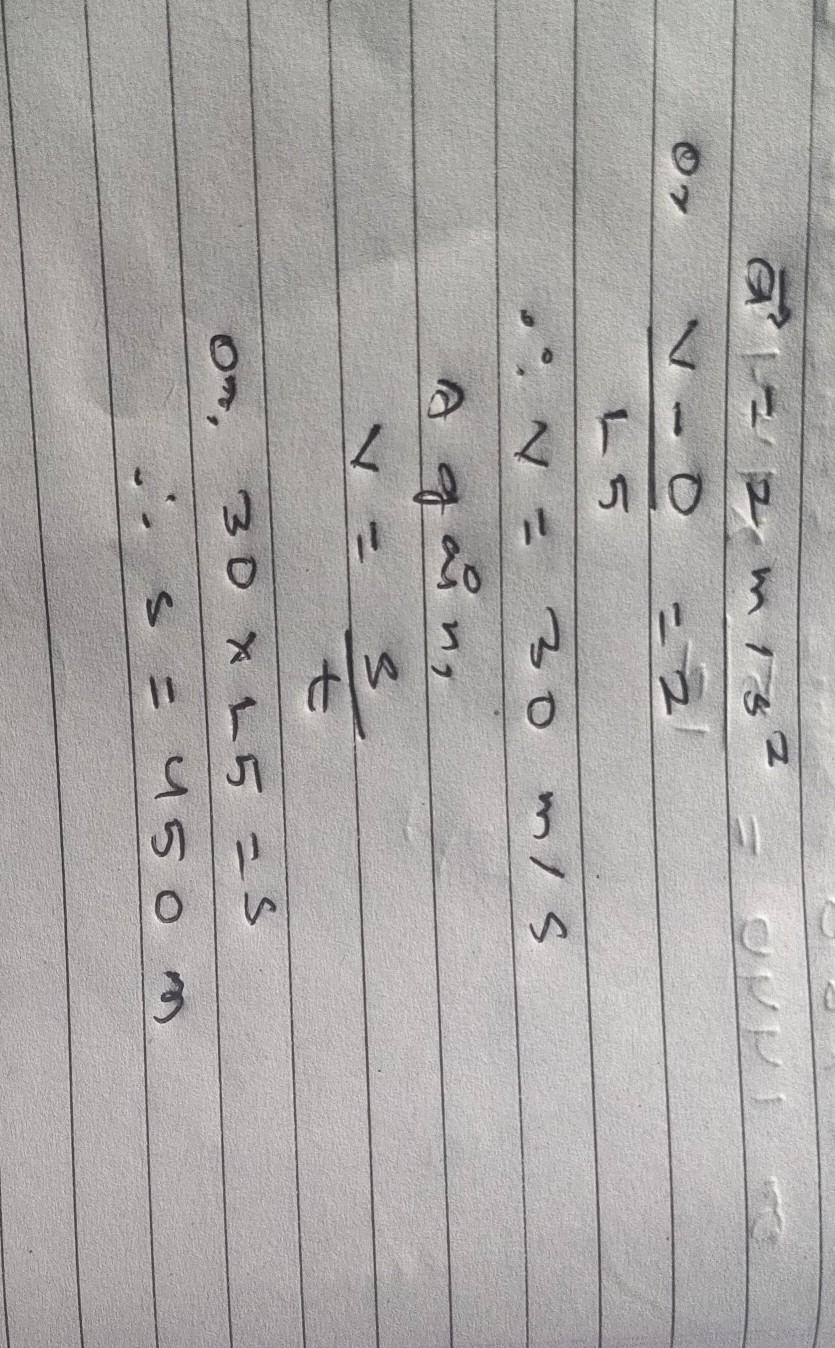 a⃗ = 2 m/s²
or v - 0 / 15 = 2
∴ v = 30 m/s
Again,
v = s/t
or, 30 × 15 = s
∴ s = 450 m